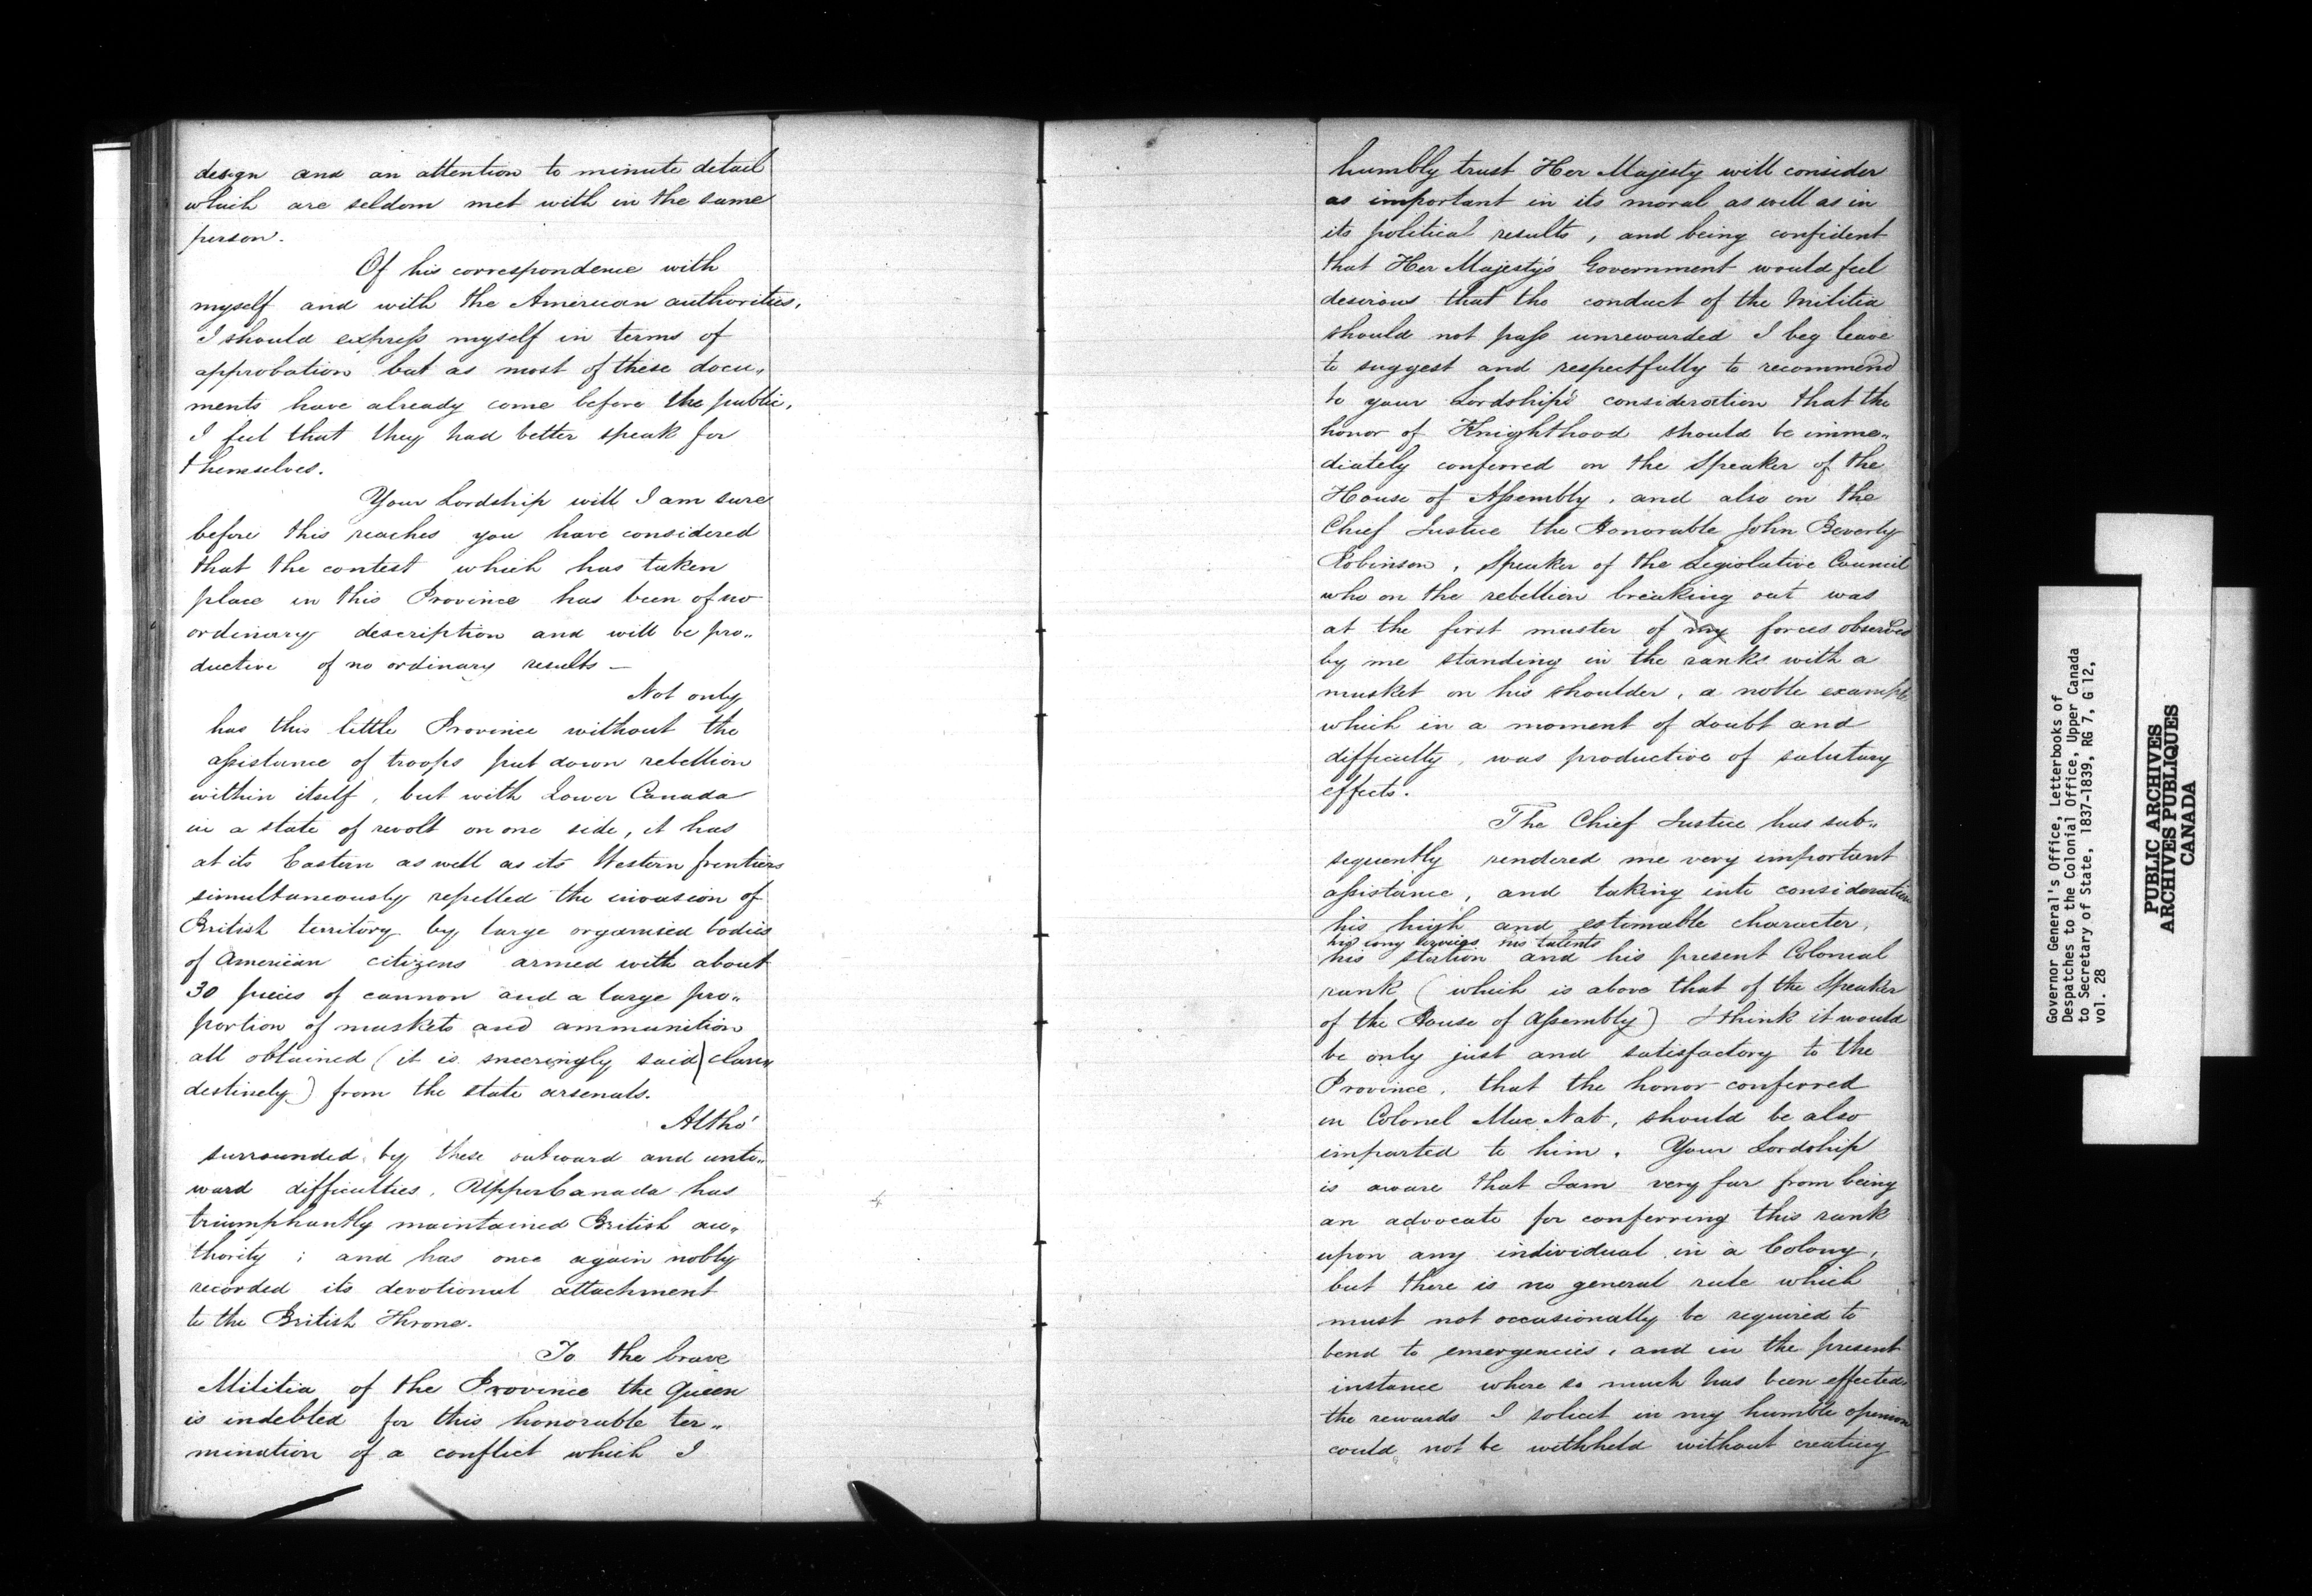 design and an attention to minute detail
which are seldom met with in the same
person.
Of his correspondence with
myself and with the American authorities,
I should express myself in terms of
approbation but as most of these docu„
ments have already come before the public,
I feel that they had better speak for
themselves.
Your Lordship will I am sure
before this reaches you have considered
that the contest which has taken
place in this Province has been of no
ordinary description and will be pro„
ductive of no ordinary results —
Not only
has this little Province without the
assistance of troops put down rebellion
within itself, but with Lower Canada
in a state of revolt on one side, it has
at its Eastern as well as its Western frontiers
simultaneously repelled the invasion of
British territory by large organized bodies
of American citizens armed with about
30 pieces of cannon and a large pro„
portion of muskets and ammunition
all obtained (it is sneeringly said) clan„
destinely) from the state arsenals.
Altho'
surrounded by these outward and unto„
ward difficulties, Upper Canada has
triumphantly maintained British au„
thority ; and has once again nobly
recorded its devotional attachment
to the British Throne.
To the brave
Militia of the Province the Queen
is indebted for this honorable ter„
mination of a conflict which I
humbly trust Her Majesty will consider
as important in its moral as well as in
its political results, and being confident
that Her Majesty's Government would feel
desirous that the conduct of the Militia
should not pass unrewarded I beg leave
to suggest and respectfully to recommend
to your Lordship's consideration that the
honor of Knighthood should be imme„
diately conferred on the Speaker of the
House of Assembly, and also on the
Chief Justice the Honorable John Beverly
Robinson, Speaker of the Legislative Council
who on the rebellion breaking out was
at the first muster of my forces observed
by me standing in the ranks with a
musket on his shoulder, a noble example
which in a moment of doubt and
difficulty, was productive of salutary
effects.
The Chief Justice has sub„
sequently rendered me very important
assistance, and taking into consideration
his high and estimable character,
his long services his talents
his station and his present Colonial
rank (which is above that of the Speaker
of the House of Assembly) I think it would
be only just and satisfactory to the
Province, that the honor conferred
on Colonel Mac Nab, should be also
imparted to him. Your Lordship
is aware that I am very far from being
an advocate for conferring this rank
upon any individual in a Colony,
but there is no general rule which
must not occasionally be required to
bend to emergencies, and in the present
instance where so much has been effected
the rewards I solicit in my humble opinion
could not be withheld without creating
Governor General's Office, Letterbooks of
Despatches to the Colonial Office, Upper Canada
to Secretary of State, 1837-1839, RG 7, G 12,
vol. 28
PUBLIC ARCHIVES
ARCHIVES PUBLIQUES
CANADA